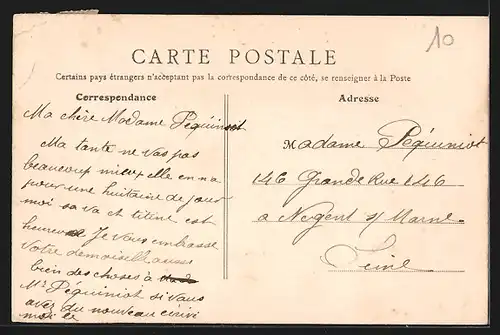 10
CARTE POSTALE
Certains pays étrangers n'acceptant pas la correspondance de ce côté, se renseigner à la Poste
Correspondance
Ma chère Madame Péquiniot
Ma tante ne vas pas
beaucoup mieux elle en na
pour une huitaine de jour
moi sa va et titine est
heureuse Je vous embrasse
votre demoiselle aussi
bien des choses à
Mr Péquiniot si vous
avez du nouveau écrivé
moi le
Adresse
Madame Péquiniot
146 Grande Rue 146
a Nogent s/ Marne
Seine